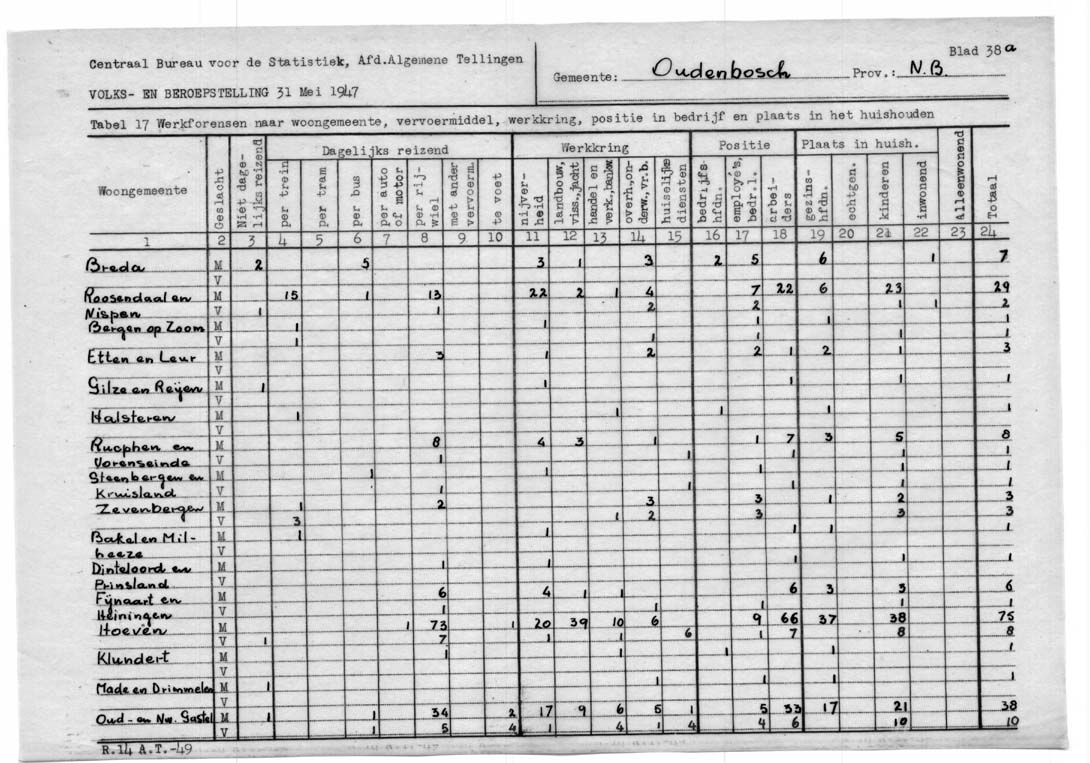 Blad 38a
Centraal Bureau voor de Statistiek, Afd.Algemene Tellingen
Gemeente: Oudenbosch Prov.: N.B.
VOLKS- EN BEROEPSTELLING 31 Mei 1947
Tabel 17 Werkforensen naar woongemeente, vervoermiddel, werkkring, positie in bedrijf en plaats in het huishouden
Woongemeente Geslacht Niet dagelijks reizend Dagelijks reizend Werkkring Positie Plaats in huish. Alleenwonend Totaal
per trein per tram per bus per auto of motor per rijwiel met ander vervoerm. te voet nijverheid landbouw, viss.,jacht handel en verk.,bankw. overh,onderw,vr.b. huiselijke diensten bedrijfshfdn. employé's, bedr.l. arbeiders gezinshfdn. echtgen. kinderen inwonend
1 2 3 4 5 6 7 8 9 10 11 12 13 14 15 16 17 18 19 20 21 22 23 24
Breda M 2 5 3 1 3 2 5 6 1 7
V
Roosendaal en M 15 1 13 22 2 1 4 7 22 6 23 29
Nispen V 1 1 2 2 1 1 2
Bergen op Zoom M 1 1 1 1 1
V 1 1 1 1 1
Etten en Leur M 3 1 2 2 1 2 1 3
V
Gilze en Reijen M 1 1 1 1 1
V
Halsteren M 1 1 1 1 1
V
Rucphen en M 8 4 3 1 1 7 3 5 8
Vorenseinde V 1 1 1 1 1
Steenbergen en M 1 1 1 1 1
Kruisland V 1 1 1 1 1
Zevenbergen M 1 2 3 3 1 2 3
V 3 1 2 3 3 3
Bakel en Mil- M 1 1 1 1 1
heeze V
Dinteloord en M 1 1 1 1 1
Prinsland V
Fijnaart en M 6 4 1 1 6 3 3 6
Heiningen V 1 1 1 1 1
Hoeven M 1 73 1 20 39 10 6 9 66 37 38 75
V 1 7 1 1 6 1 7 8 8
Klundert M 1 1 1 1 1
V
Made en Drimmelen M 1 1 1 1 1
V
Oud- en Nw. Gastel M 1 1 34 2 17 9 6 5 1 5 33 17 21 38
V 1 5 4 1 4 1 4 4 6 10 10
R.14 A.T.-49